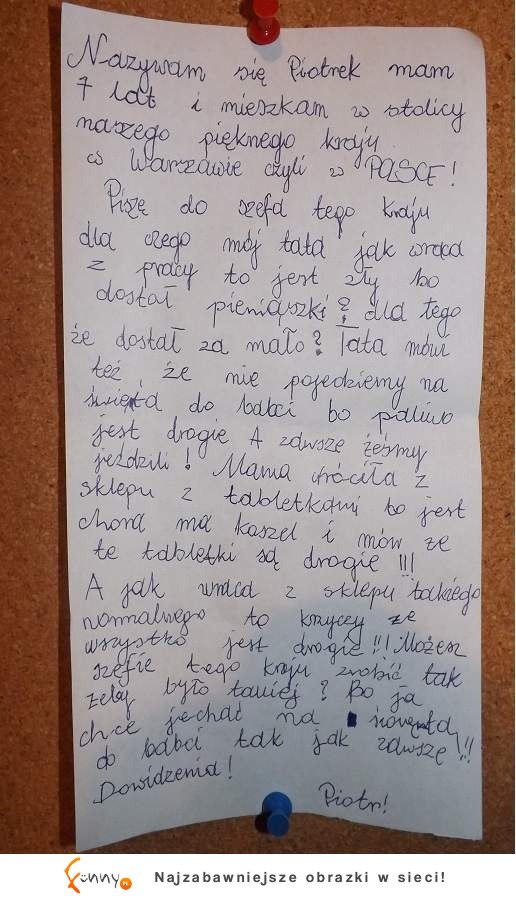 Nazywam się Piotrek mam
7 lat i mieszkam w stolicy
naszego pięknego kraju
w Warszawie czyli w POLSCE!
Piszę do szefa tego kraju
dla czego mój tata jak wraca
z pracy to jest zły bo
dostał pieniąszki? dla tego
że dostał za mało? Tata mówi
też że nie pojedziemy na
święta do babci bo paliwo
jest drogie A zawsze żeśmy
jeździli! Mama wróciła z
sklepu z tabletkami bo jest
chora ma kaszel i mów że
te tabletki są drogie!!!
A jak wraca z sklepu takiego
normalnego to krzyczy że
wszystko jest drogie!!! Możesz
szefie tego kraju zrobić tak
żeby było taniej? Bo ja
chce jechać na święta
do babci tak jak zawsze!!!
Dowidzenia!
Piotr!
funny.pl
Najzabawniejsze obrazki w sieci!